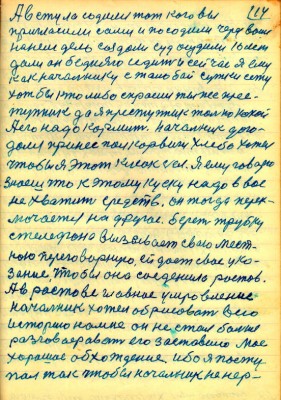 114
А вступа содит тот кого вы
пригласили сами и посодили через ваш
на ней день создали суд осудили 10 лет
дали он бедняго седит и сейчас я ему
как начальнику с тапобай сутки сету
хотбы кто либо спросит ты же прес-
тупник да я преступник только какой
Его надо кормит. Начальник дого-
дался принес пои кормит Хлеба хотел
чтобы я этот кусок ел. Я ему говорю
знаеш что к этому куску надо вВас
не хватит средств. он тогда перек-
лючается на другое. берет трубку
стелефона вызывает свою мест-
ную переговорную, ей дает свое ука-
зание, чтобы она соеденила ростов.
А в ростове главное управление
начальник хотел обрисовать Всю
историю на мне он не стал больше
разговаревать его заставило мое
харошае обхождение. ибо я посту
пал так чтобы начальник не нер-